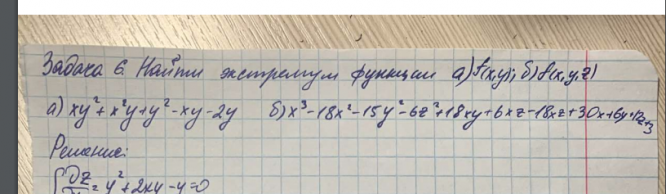 Задача 6. Найти экстремум функции а) f(x,y); б) f(x,y,z)
а) xy²+x²y+y²-xy-2y б) x³-18x²-15y²-6z²+18xy+6xz-18xz+30x+6y+12z+3
Решение:
∂z = y²+2xy-y=0